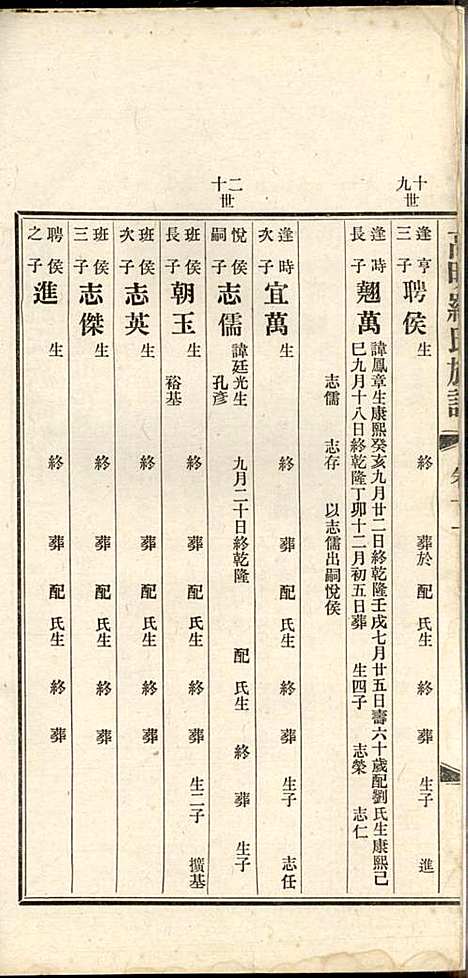 十九世
逢亨三子 聘侯 生 終 葬於 配 氏生 終 葬 生子 進
逢時長子 翹萬 諱鳳章生康熙癸亥九月廿二日終乾隆壬戌七月廿五日壽六十歲配劉氏生康熙己
巳九月十八日終乾隆丁卯十二月初五日葬 生四子 志榮 志仁
志儒 志存 以志儒出嗣悅侯
逢時次子 宜萬 生 終 葬 配 氏生 終 葬 生子 志任
二十世
悅侯嗣子 志儒 諱廷光生 九月二十日終乾隆 配 氏生 終 葬 生子
孔彥
班侯長子 朝玉 生 終 葬 配 氏生 終 葬 生二子 擴基
裕基
班侯次子 志英 生 終 葬 配 氏生 終 葬
班侯三子 志傑 生 終 葬 配 氏生 終 葬
聘侯之子 進 生 終 葬 配 氏生 終 葬